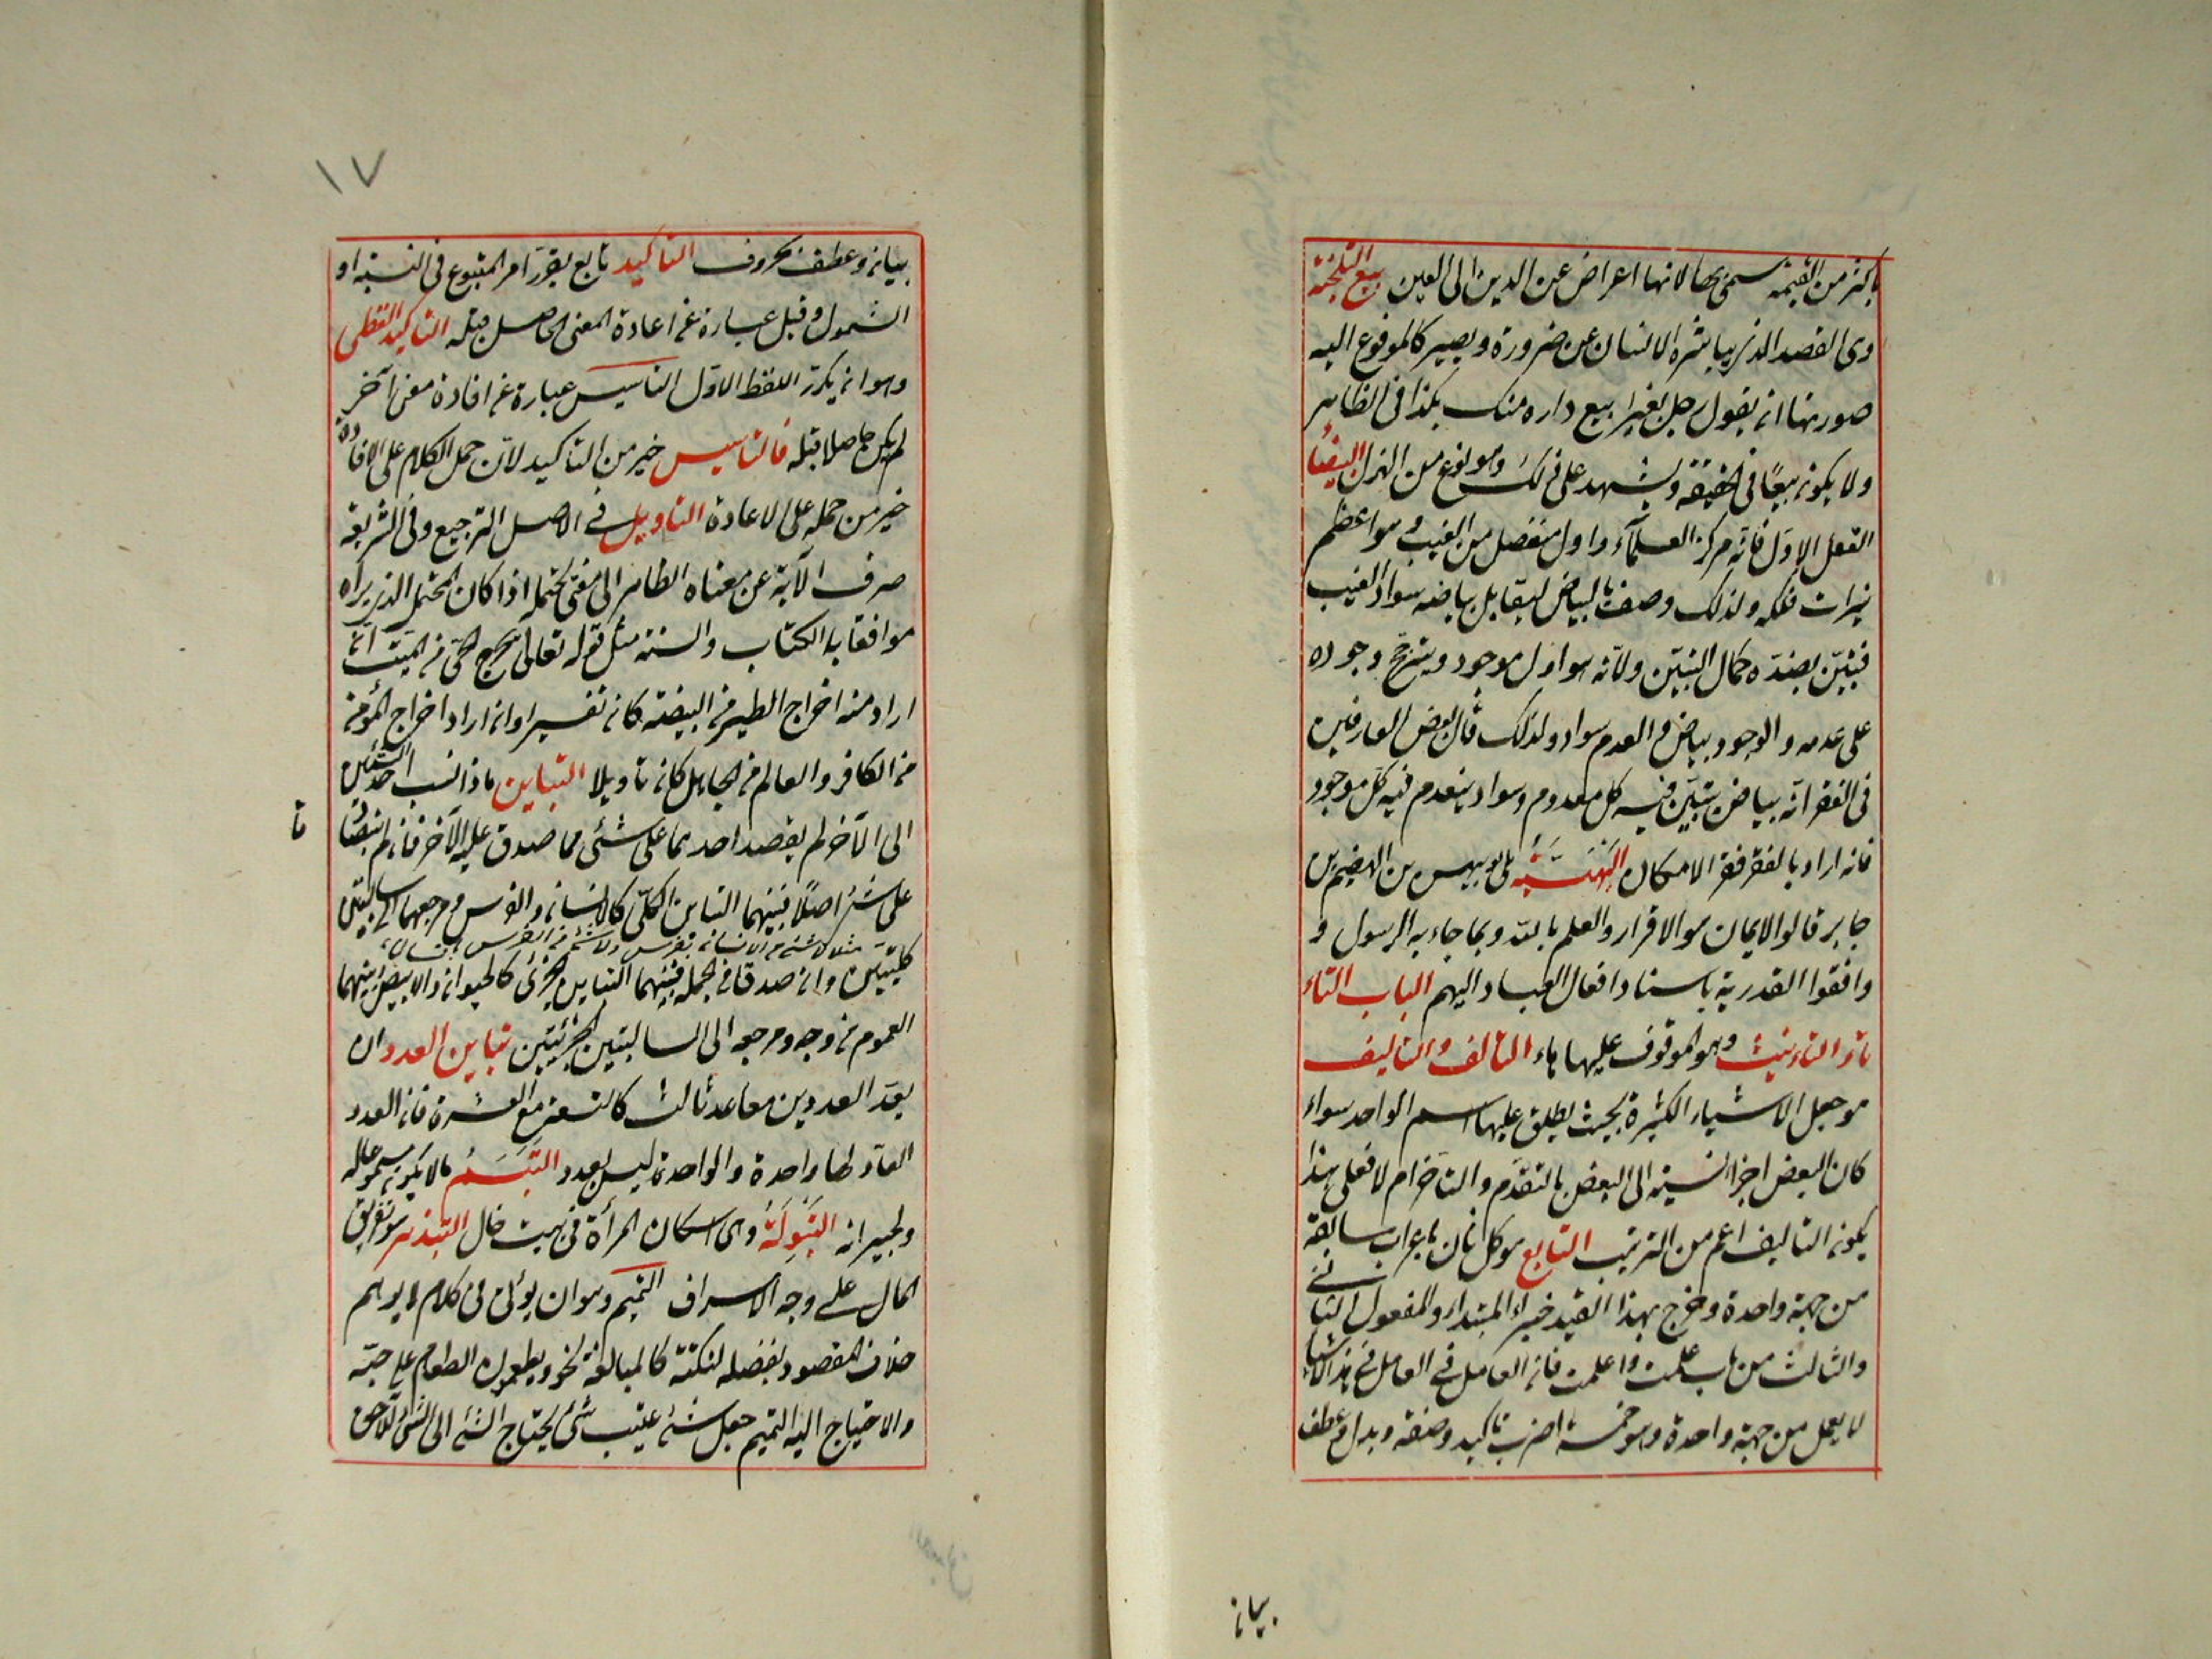 باكثر من القيمة سمى بها لانها اعراض عن الدين الى العين بيع التلجئة
وهى القصد الذى يباشره الانسان عن ضرورة ويصير كالموفوع اليه
صورتها ان يقول رجل لغيرا بيع داره منك بكذا فى الظاهر
ولا يكون بيعًا فى الحقيقة ويشهد على ذلك وهو نوع من الهزل البيضاء
العقل الاول فانه مركز العلمآء واول منفصل من الغيب وهو اعظم
نيرات فلكه ولذلك وصف بالبياض ليقابل بياضه سواد الغيب
فيتبين بضده كمال التبين ولانه هو اول موجود ويترجح وجوده
على عدمه والوجود بياض والعدم سواد ولذلك قال بعض العارفين
فى الفقر انه بياض يتبين فيه كل معدوم وسواد ينعدم فيه كل موجود
فانه اراد بالفقر فقر الامكان البهنسية هى ابو بيهس بن الهيضم بن
جابر قالوا الايمان هو الاقرار والعلم بالله وبما جاء به الرسول و
وافقوا القدرية باسناد افعال العباد اليهم الباب التاء
تاء التاءنيث وهو الموقوف عليها هاء التالف والتاليف
هو جعل الاشياء الكثيرة بحيث يطلق عليها اسم الواحد سواء
كان لبعض اجزائه نسبة الى البعض بالتقدم والتأخر ام لا فعلى هذا
يكون التاليف اعم من الترتيب التابع هو كل ثان باعراب سابقه
من جهة واحدة وخرج بهذا القيد خبر المبتداء والمفعول الثانى
والثالث من باب علمت واعلمت فان العامل فى العامل فى هذه الاشياء
لا يعمل من جهة واحدة وهو خمسة اضرب تاكيد وصفة وبدل وعطف
بيان
١٧
بيان وعطف بحروف التاكيد تابع يقرر امر المتبوع فى النسبة او
الشمول وقيل عبارة عن اعادة المعنى الحاصل قبله التاكيد اللفظى
وهو ان يكرر اللفظ الاول التاسيس عبارة عن افادة معنى آخر
لم يكن حاصلا قبله فالتاسيس خير من التاكيد لان حمل الكلام على الافادة
خير من حمله على الاعادة التاويل فى الاصل الترجيع وفى الشريعة
صرف الآية عن معناه الظاهر الى معنى يحتمله اذا كان المحتمل الذى يراه
موافقا بالكتاب والسنة مثل قوله تعالى يخرج الحى من الميت ان
اراد منه اخراج الطير من البيضة كان تفسيرا وان اراد اخراج المؤمن
من الكافر والعالم من الجاهل كان تاويلا التباين ما اذا نسب احد الشيئين
الى الآخر لم يقصد احدهما على شئ مما صدق عليه الآخر فان لم يتصادقا
على شئ اصلًا فبينهما التباين الكلى كالانسان والفرس ومرجعهما الى سالبتين
مثل لا شئ من الانسان بفرس ولا شئ من الفرس بانسان
كليتين وان صدقا فى الجملة فبينهما التباين الجزئى كالحيوان والابيض وبينهما
العموم من وجه ومرجعه الى السالبتين الجزئيتين تباين العدد ان
يعد العددين معا عد ثالث كالتسعة مع العشرة فان العدد
العاد لها واحدة والواحدة ليس بعدد التبسم ما لا يكون مسموعا له
ولجيرانه التبولة وهى اسكان المرأة فى بيت خال التبذير هو تفريق
المال على وجه الاسراف التتميم وهو ان يؤتى فى كلام لا يوهم
خلاف المقصود بفضلة لنكتة كالمبالغة نحو ويطعمون الطعام على حبه
والاحتياج اليه التتميم جعل شئ عقيب شئ يحتاج الشئ الى الشئ اللاحق